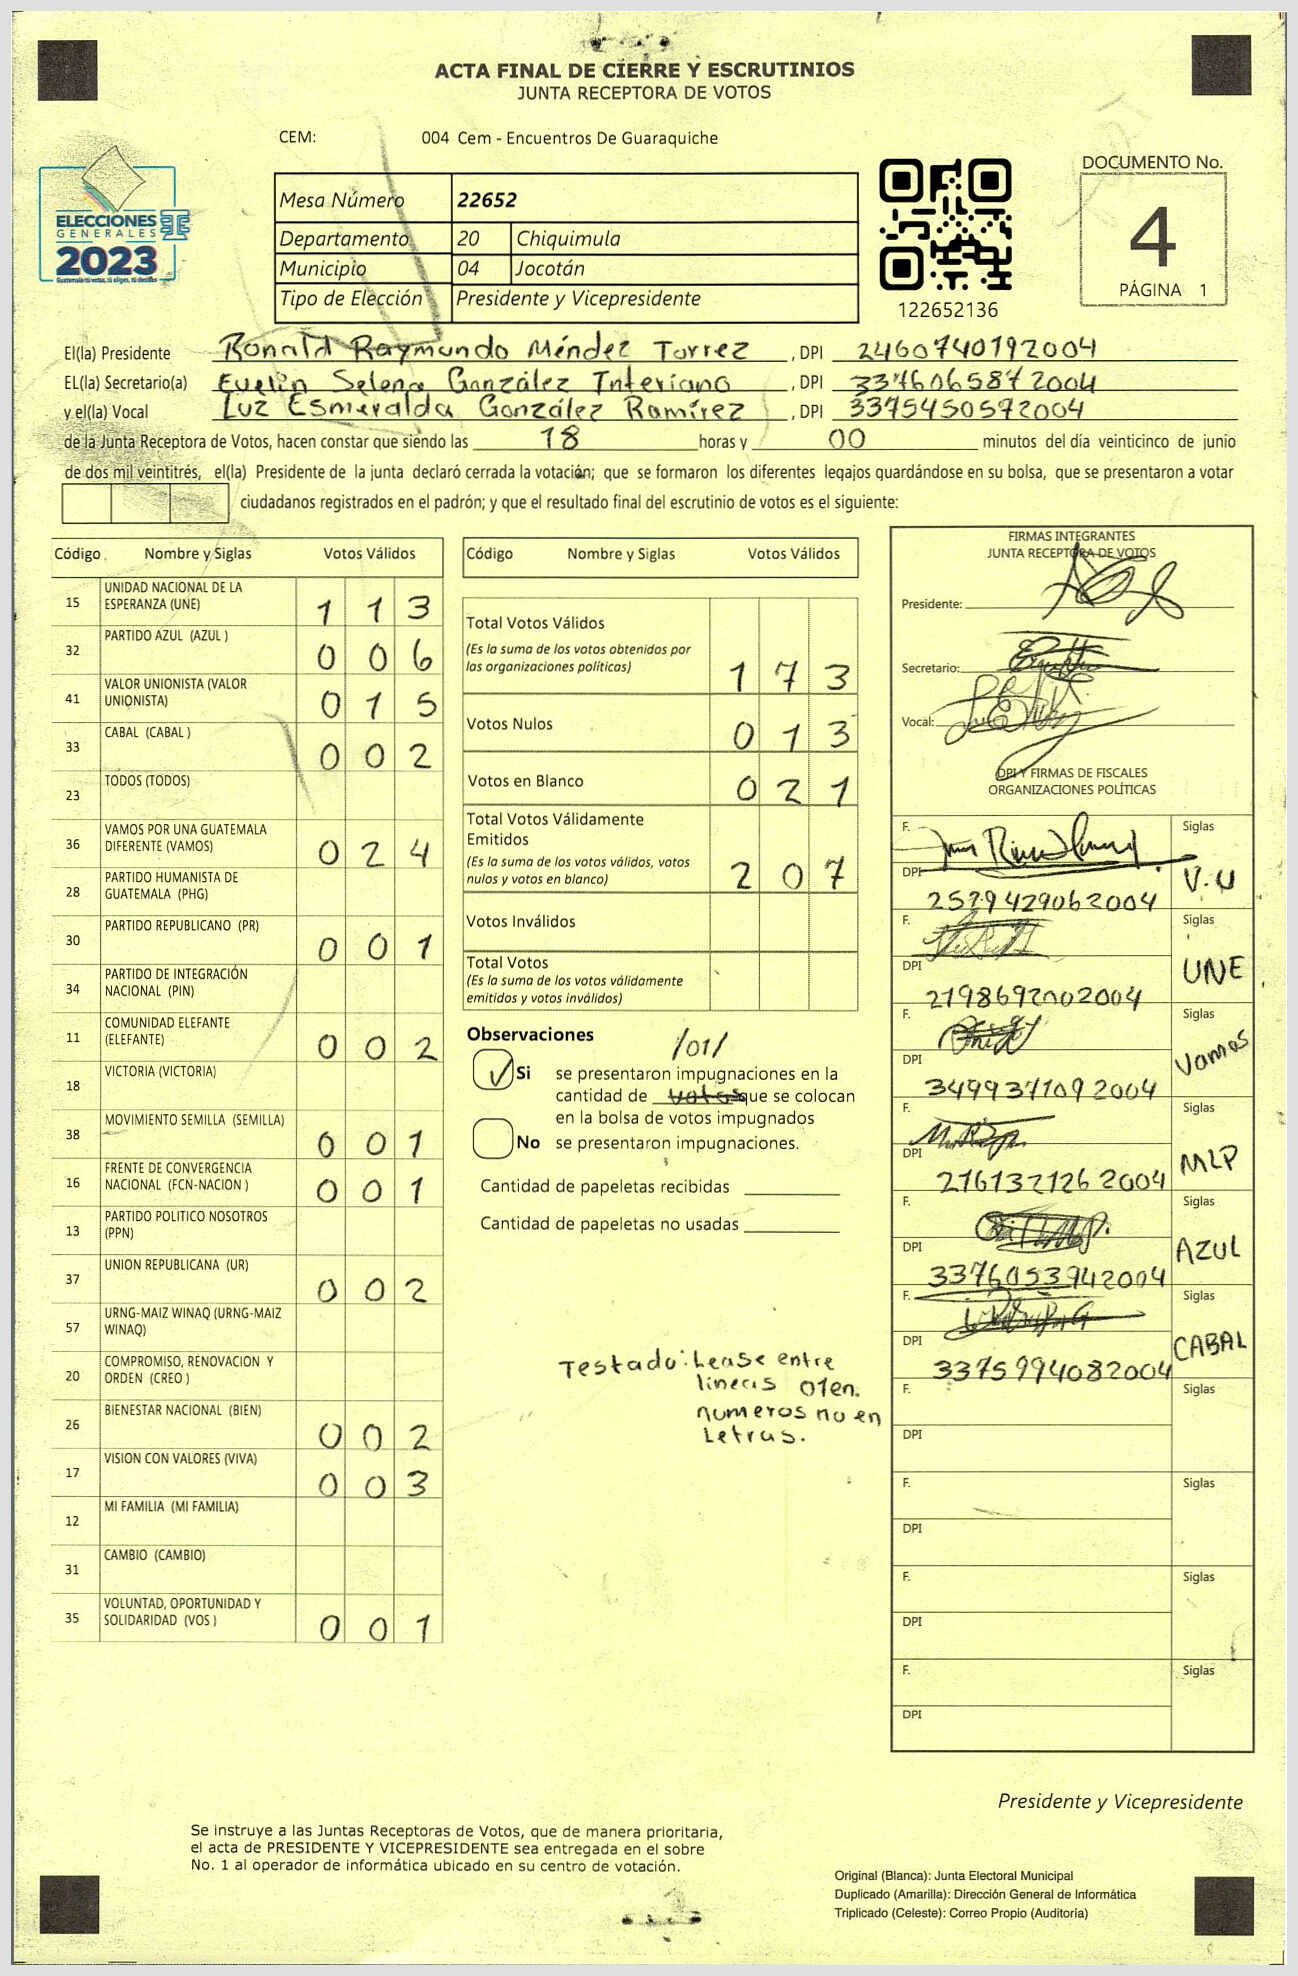 ACTA FINAL DE CIERRE Y ESCRUTINIOS
JUNTA RECEPTORA DE VOTOS
CEM: 004 Cem - Encuentros De Guaraquiche
ELECCIONES
GENERALES
2023
Mesa Número 22652
Departamento 20 Chiquimula
Municipio 04 Jocotán
Tipo de Elección Presidente y Vicepresidente
122652136
DOCUMENTO No.
4
PÁGINA 1
El(la) Presidente Ronald Raymundo Méndez Torrez , DPI 2460740192004
EL(la) Secretario(a) Evelin Selena González Interiano , DPI 3376065872004
y el(la) Vocal Luz Esmeralda González Ramírez , DPI 3375450572004
de la Junta Receptora de Votos, hacen constar que siendo las 18 horas y 00 minutos del día veinticinco de junio
de dos mil veintitrés, el(la) Presidente de la junta declaró cerrada la votación; que se formaron los diferentes legajos guardándose en su bolsa, que se presentaron a votar
ciudadanos registrados en el padrón; y que el resultado final del escrutinio de votos es el siguiente:
Código Nombre y Siglas Votos Válidos
15 UNIDAD NACIONAL DE LA ESPERANZA (UNE) 1 1 3
32 PARTIDO AZUL (AZUL ) 0 0 6
41 VALOR UNIONISTA (VALOR UNIONISTA) 0 1 5
33 CABAL (CABAL ) 0 0 2
23 TODOS (TODOS)
36 VAMOS POR UNA GUATEMALA DIFERENTE (VAMOS) 0 2 4
28 PARTIDO HUMANISTA DE GUATEMALA (PHG)
30 PARTIDO REPUBLICANO (PR) 0 0 1
34 PARTIDO DE INTEGRACIÓN NACIONAL (PIN)
11 COMUNIDAD ELEFANTE (ELEFANTE) 0 0 2
18 VICTORIA (VICTORIA)
38 MOVIMIENTO SEMILLA (SEMILLA) 0 0 1
16 FRENTE DE CONVERGENCIA NACIONAL (FCN-NACION ) 0 0 1
13 PARTIDO POLITICO NOSOTROS (PPN)
37 UNION REPUBLICANA (UR) 0 0 2
57 URNG-MAIZ WINAQ (URNG-MAIZ WINAQ)
20 COMPROMISO, RENOVACION Y ORDEN (CREO )
26 BIENESTAR NACIONAL (BIEN) 0 0 2
17 VISION CON VALORES (VIVA) 0 0 3
12 MI FAMILIA (MI FAMILIA)
31 CAMBIO (CAMBIO)
35 VOLUNTAD, OPORTUNIDAD Y SOLIDARIDAD (VOS ) 0 0 1
Código Nombre y Siglas Votos Válidos
Total Votos Válidos 1 7 3
(Es la suma de los votos obtenidos por
las organizaciones políticas)
Votos Nulos 0 1 3
Votos en Blanco 0 2 1
Total Votos Válidamente
Emitidos 2 0 7
(Es la suma de los votos válidos, votos
nulos y votos en blanco)
Votos Inválidos
Total Votos
(Es la suma de los votos válidamente
emitidos y votos inválidos)
Observaciones
/01/
Si se presentaron impugnaciones en la
cantidad de votos que se colocan
en la bolsa de votos impugnados
No se presentaron impugnaciones.
Cantidad de papeletas recibidas
Cantidad de papeletas no usadas
Testado: Lease entre
lineas 01en.
numeros no en
Letras.
FIRMAS INTEGRANTES
JUNTA RECEPTORA DE VOTOS
Presidente:
Secretario:
Vocal:
DPI Y FIRMAS DE FISCALES
ORGANIZACIONES POLÍTICAS
F. Siglas
DPI 2529429062004 V.U
F. Siglas
DPI 2198692002004 UNE
F. Siglas
DPI 3499371092004 Vamos
F. Siglas
DPI 2161321262004 MLP
F. Siglas
DPI 3376053942004 AZUL
F. Siglas
DPI 3375994082004 CABAL
F. Siglas
DPI
F. Siglas
DPI
F. Siglas
DPI
F. Siglas
DPI
Presidente y Vicepresidente
Se instruye a las Juntas Receptoras de Votos, que de manera prioritaria,
el acta de PRESIDENTE Y VICEPRESIDENTE sea entregada en el sobre
No. 1 al operador de informática ubicado en su centro de votación.
Original (Blanca): Junta Electoral Municipal
Duplicado (Amarilla): Dirección General de Informática
Triplicado (Celeste): Correo Propio (Auditoría)